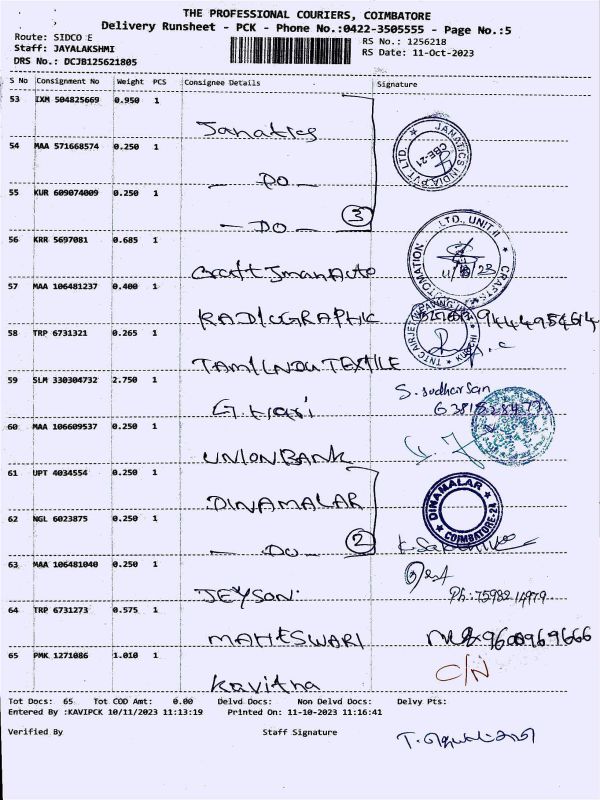 THE PROFESSIONAL COURIERS, COIMBATORE
Delivery Runsheet - PCK - Phone No.:0422-3505555 - Page No.:5
Route: SIDCO E
Staff: JAYALAKSHMI
DRS No.: DCJB125621805
RS No.: 1256218
RS Date: 11-Oct-2023
S No Consignment No Weight PCS Consignee Details Signature
53 IXM 504825669 0.950 1
Janatics
JANATICS INDIA PVT. LTD. CBE-21
54 MAA 571668574 0.250 1
— DO —
55 KUR 609074009 0.250 1
— DO — 3
56 KRR 5697081 0.685 1
Craftsman Auto
CRAFTS AUTOMATION LTD., UNIT II
57 MAA 106481237 0.400 1
RADIOGRAPHIC 9444954614
58 TRP 6731321 0.265 1
TAMILNDU TEXTILE
59 SLM 330304732 2.750 1
S. Sudharsan
G. Hari
60 MAA 106609537 0.250 1
UNION BANK
61 UPT 4034554 0.250 1
DINAMALAR
DINAMALAR COIMBATORE-24
62 NGL 6023875 0.250 1
— DO — 2
63 MAA 106481040 0.250 1
JEYSON
Ph: 75982 14979
64 TRP 6731273 0.575 1
MAHESWARI 9600969666
65 PMK 1271086 1.010 1
C/N
Kavitha
Tot Docs: 65 Tot COD Amt: 0.00 Delvd Docs: Non Delvd Docs: Delvy Pts:
Entered By :KAVIPCK 10/11/2023 11:13:19 Printed On: 11-10-2023 11:16:41
Verified By Staff Signature